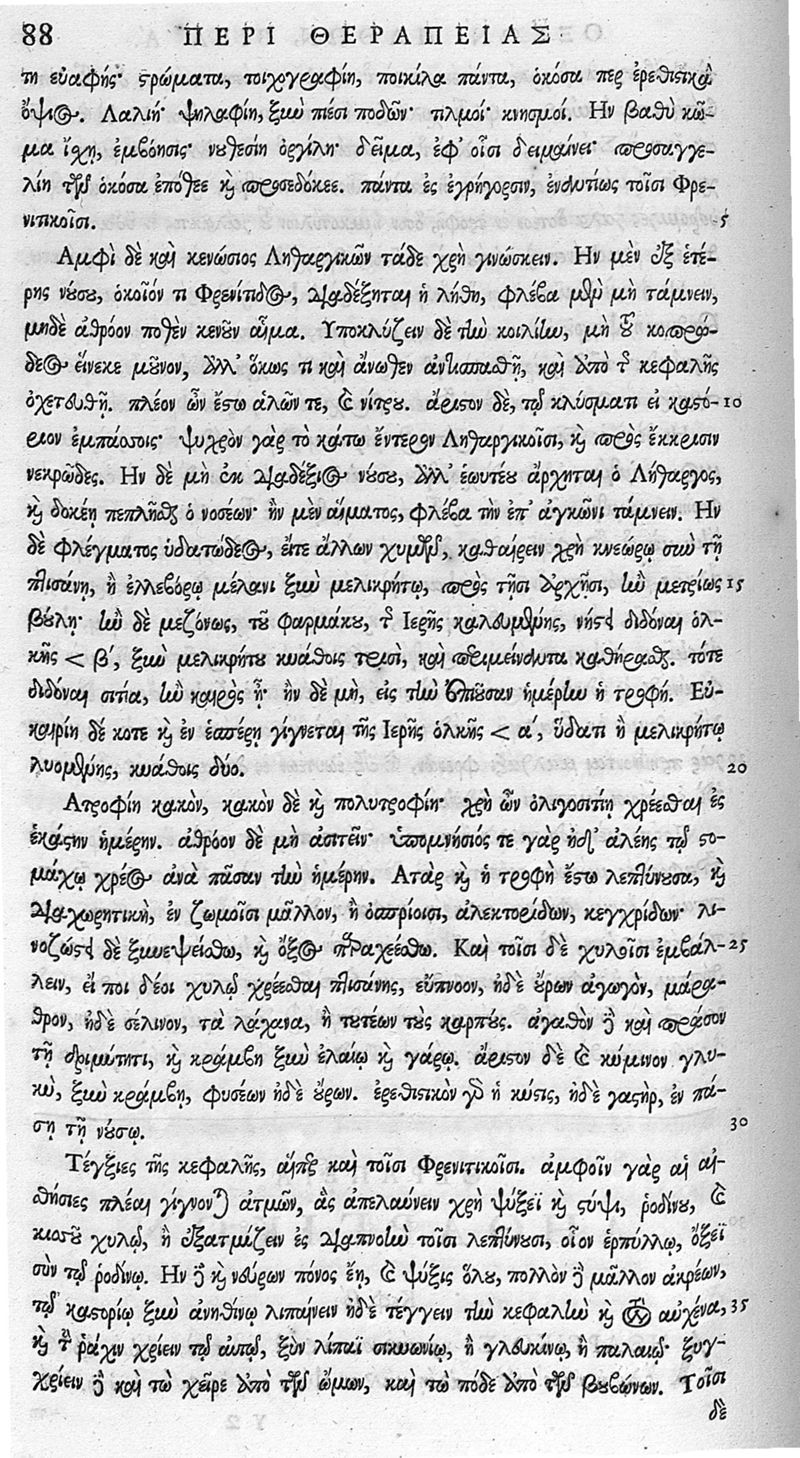 88 ΠΕΡΙ ΘΕΡΑΠΕΙΑΣ
τη εὐαφής· στρώματα, τοιχογραφίη, ποικίλα πάντα, ὁκόσα περ ἐρεθιστικὰ
ὄψιος. Λαλιή· ψηλαφίη, ξυνὴ πιέσι ποδῶν· τιλμοί· κνησμοί. Ην βαθὺ κῶ-
μα ἴχῃ, ἐμβόησις· νουθεσίη ὀργίλη· δεῖμα, ἐφ' οἷσι δειμαίνει· προσαγγε-
λίη τῶν ὁκόσα ἐπόθεε καὶ προσεδόκεε. πάντα ἐς ἐγρήγορσιν, ἐναντίως τοῖσι Φρε-
νιτικοῖσι. 5
Αμφὶ δὲ καὶ κενώσιος Ληθαργικῶν τάδε χρὴ γινώσκειν. Ην μὲν ἐξ ἑτέ-
ρης νούσου, ὁκοῖόν τι Φρενίτιδος, διαδέξηται ἡ λήθη, φλέβα μὲν μὴ τάμνειν,
μηδὲ ἀθρόον ποθὲν κενοῦν αἷμα. Υποκλύζειν δὲ τὴν κοιλίην, μὴ τοῦ κοπρώ-
δεος εἵνεκε μοῦνον, ἀλλ' ὅκως τι καὶ ἄνωθεν ἀντισπασθῇ, καὶ ἀπὸ τῆς κεφαλῆς
ὀχετευθῇ. πλέον ὦν ἔστω ἁλῶν τε, καὶ νίτρου. ἄριστον δὲ, τῷ κλύσματι εἰ καστό- 10
ριον ἐμπάσσοις· ψυχρὸν γὰρ τὸ κάτω ἔντερον Ληθαργικοῖσι, καὶ πρὸς ἔκκρισιν
νεκρῶδες. Ην δὲ μὴ ἐκ διαδέξιος νούσου, ἀλλ' ἑωυτέου ἄρχηται ὁ Λήθαργος,
καὶ δοκέῃ πεπλῆσθαι ὁ νοσέων· ἢν μὲν αἵματος, φλέβα τὴν ἐπ' ἀγκῶνι τάμνειν. Ην
δὲ φλέγματος ὑδατώδεος, εἴτε ἄλλων χυμῶν, καθαίρειν χρὴ κνεώρῳ σὺν τῇ
πτισάνῃ, ἢ ἐλλεβόρῳ μέλανι ξὺν μελικρήτῳ, πρὸς τῇσι ἀρχῇσι, ἢν μετρίως 15
βούλῃ· ἢν δὲ μεζόνως, τοῦ φαρμάκου, τῆς Ιερῆς καλευμένης, νήστι διδόναι ὁλ-
κῆς < β´, ξὺν μελικρήτου κυάθοις τρισὶ, καὶ περιμείναντα καθήρασθαι. τότε
διδόναι σιτία, ἢν καιρὸς ᾖ· ἢν δὲ μὴ, εἰς τὴν ἐπιοῦσαν ἡμέρην ἡ τροφή. Εὐ-
καιρίη δέ κοτε καὶ ἐν ἑσπέρῃ γίγνεται τῆς Ιερῆς ὁλκῆς < α´, ὕδατι ἢ μελικρήτῳ
λυομένης, κυάθοις δύο. 20
Ατροφίη κακὸν, κακὸν δὲ καὶ πολυτροφίη· χρὴ ὦν ὀλιγοσιτίῃ χρέεσθαι ἐς
ἑκάστην ἡμέρην. ἀθρόον δὲ μὴ ἀσιτεῖν· ὑπομνήσιός τε γὰρ ἠδ' ἀλέης τῷ στο-
μάχῳ χρέος ἀνὰ πᾶσαν τὴν ἡμέρην. Ατὰρ καὶ ἡ τροφὴ ἔστω λεπτύνουσα, καὶ
διαχωρητικὴ, ἐν ζωμοῖσι μᾶλλον, ἢ ὀσπρίοισι, ἀλεκτορίδων, κεγχρίδων· λι-
νοζῶστι δὲ ξυνεψείσθω, καὶ ὄξος παραχεέσθω. Καὶ τοῖσι δὲ χυλοῖσι ἐμβάλ- 25
λειν, εἴ ποι δέοι χυλῷ χρέεσθαι πτισάνης, εὔπνοον, ἠδὲ οὔρων ἀγωγὸν, μάρα-
θρον, ἠδὲ σέλινον, τὰ λάχανα, ἢ τουτέων τοὺς καρπούς. ἀγαθὸν δὲ καὶ πράσον
τῇ δριμύτητι, καὶ κράμβη ξὺν ἐλαίῳ καὶ γάρῳ. ἄριστον δὲ καὶ κύμινον γλυ-
κὺ, ξὺν κράμβῃ, φυσέων ἠδὲ οὔρων. ἐρεθιστικὸν γὰρ ἡ κύστις, ἠδὲ γαστὴρ, ἐν πά-
σῃ τῇ νούσῳ. 30
Τέγξιες τῆς κεφαλῆς, αἵπερ καὶ τοῖσι Φρενιτικοῖσι. ἀμφοῖν γὰρ αἱ αἰ-
σθήσιες πλέαι γίγνονται ἀτμῶν, ἃς ἀπελαύνειν χρὴ ψύξεϊ καὶ στύψι, ῥοδίνου, καὶ
κισσοῦ χυλῷ, ἢ ἐξατμίζειν ἐς διαπνοὴν τοῖσι λεπτύνουσι, οἷον ἑρπύλλῳ, ὄξεϊ
σὺν τῷ ῥοδίνῳ. Ην δὲ καὶ νεύρων πόνος ἔῃ, καὶ ψύξις ὅλου, πολλὸν δὲ μᾶλλον ἀκρέων,
τῷ καστορίῳ ξὺν ἀνηθίνῳ λιπαίνειν ἠδὲ τέγγειν τὴν κεφαλὴν καὶ τὸν αὐχένα, 35
καὶ τὴν ῥάχιν χρίειν τῷ αὐτῷ, ξὺν λίπαϊ σικυωνίῳ, ἢ γλευκίνῳ, ἢ παλαιῷ· ξυγ-
χρίειν δὲ καὶ τὼ χεῖρε ἀπὸ τῶν ὤμων, καὶ τὼ πόδε ἀπὸ τῶν βουβώνων. Τοῖσι
δὲ